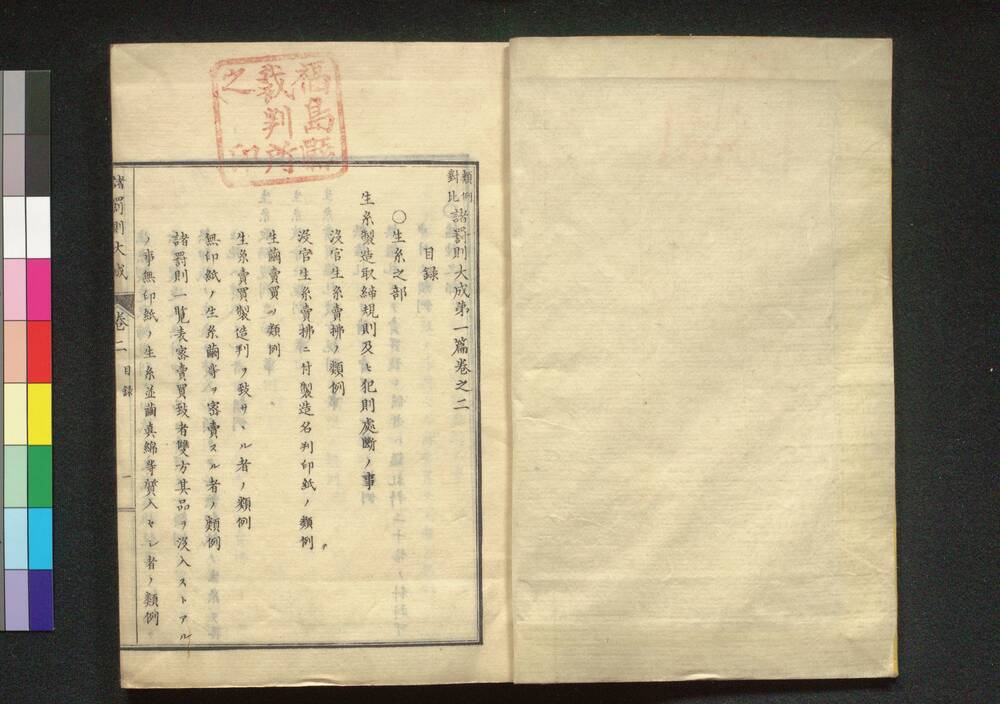 福島縣
裁判所
之印
類例
對比
諸罰則大成第一篇卷之二
目錄
○生糸之部
生糸製造取締規則及ヒ犯則處斷ノ事
沒官生糸賣拂ノ類例
沒官生糸賣拂ニ付製造名判印紙ノ類例
生繭賣買ノ類例
生糸賣買製造判ヲ致サヽル者ノ類例
無印紙ノ生糸繭等ヲ密賣スル者ノ類例
諸罰則一覧表密賣買致者雙方其品ヲ沒入ストアル
ノ事無印紙ノ生糸並繭真綿等質入セシ者ノ類例
諸罰則大成
卷二
目錄
一